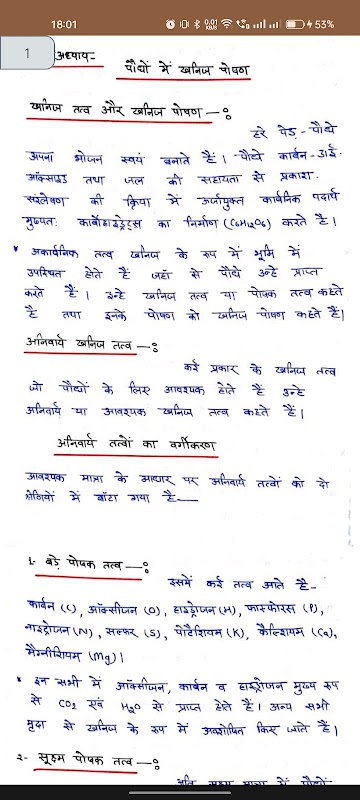 18:01
0.01 KB/s
53%
1
अध्याय-
पौधों में खनिज पोषण
खनिज तत्व और खनिज पोषण —:
हरे पेड़ - पौधे
अपना भोजन स्वयं बनाते हैं। पौधे कार्बन-डाई-
ऑक्साइड तथा जल की सहायता से प्रकाश-
संश्लेषण की क्रिया में ऊर्जायुक्त कार्बनिक पदार्थ
मुख्यतः कार्बोहाइड्रेट्स का निर्माण (C6H12O6) करते हैं।
* अकार्बनिक तत्व खनिज के रूप में भूमि में
उपस्थित होते हैं जहां से पौधे उन्हे प्राप्त
करते हैं। इन्हे खनिज तत्व या पोषक तत्व कहते
है तथा इनके पोषण को खनिज पोषण कहते हैं।
अनिवार्य खनिज तत्व —:
कई प्रकार के खनिज तत्व
जो पौधों के लिए आवश्यक होते हैं उन्हे
अनिवार्य या आवश्यक खनिज तत्व कहते हैं।
अनिवार्य तत्वों का वर्गीकरण
आवश्यक मात्रा के आधार पर अनिवार्य तत्वों को दो
श्रेणियों में बाँटा गया है—
1- बड़े पोषक तत्व —:
इसमें कई तत्व आते है-
कार्बन (C), ऑक्सीजन (O), हाइड्रोजन (H), फास्फोरस (P),
नाइट्रोजन (N), सल्फर (S), पोटैशियम (K), कैल्शियम (Ca),
मैग्नीशियम (Mg)।
* इन सभी में ऑक्सीजन, कार्बन व हाइड्रोजन मुख्य रूप
से CO2 एवं H2O से प्राप्त होते हैं। अन्य सभी
मृदा से खनिज के रूप में अवशोषित किए जाते हैं।
2- सूक्ष्म पोषक तत्व —:
अति सूक्ष्म मात्रा में पौधों